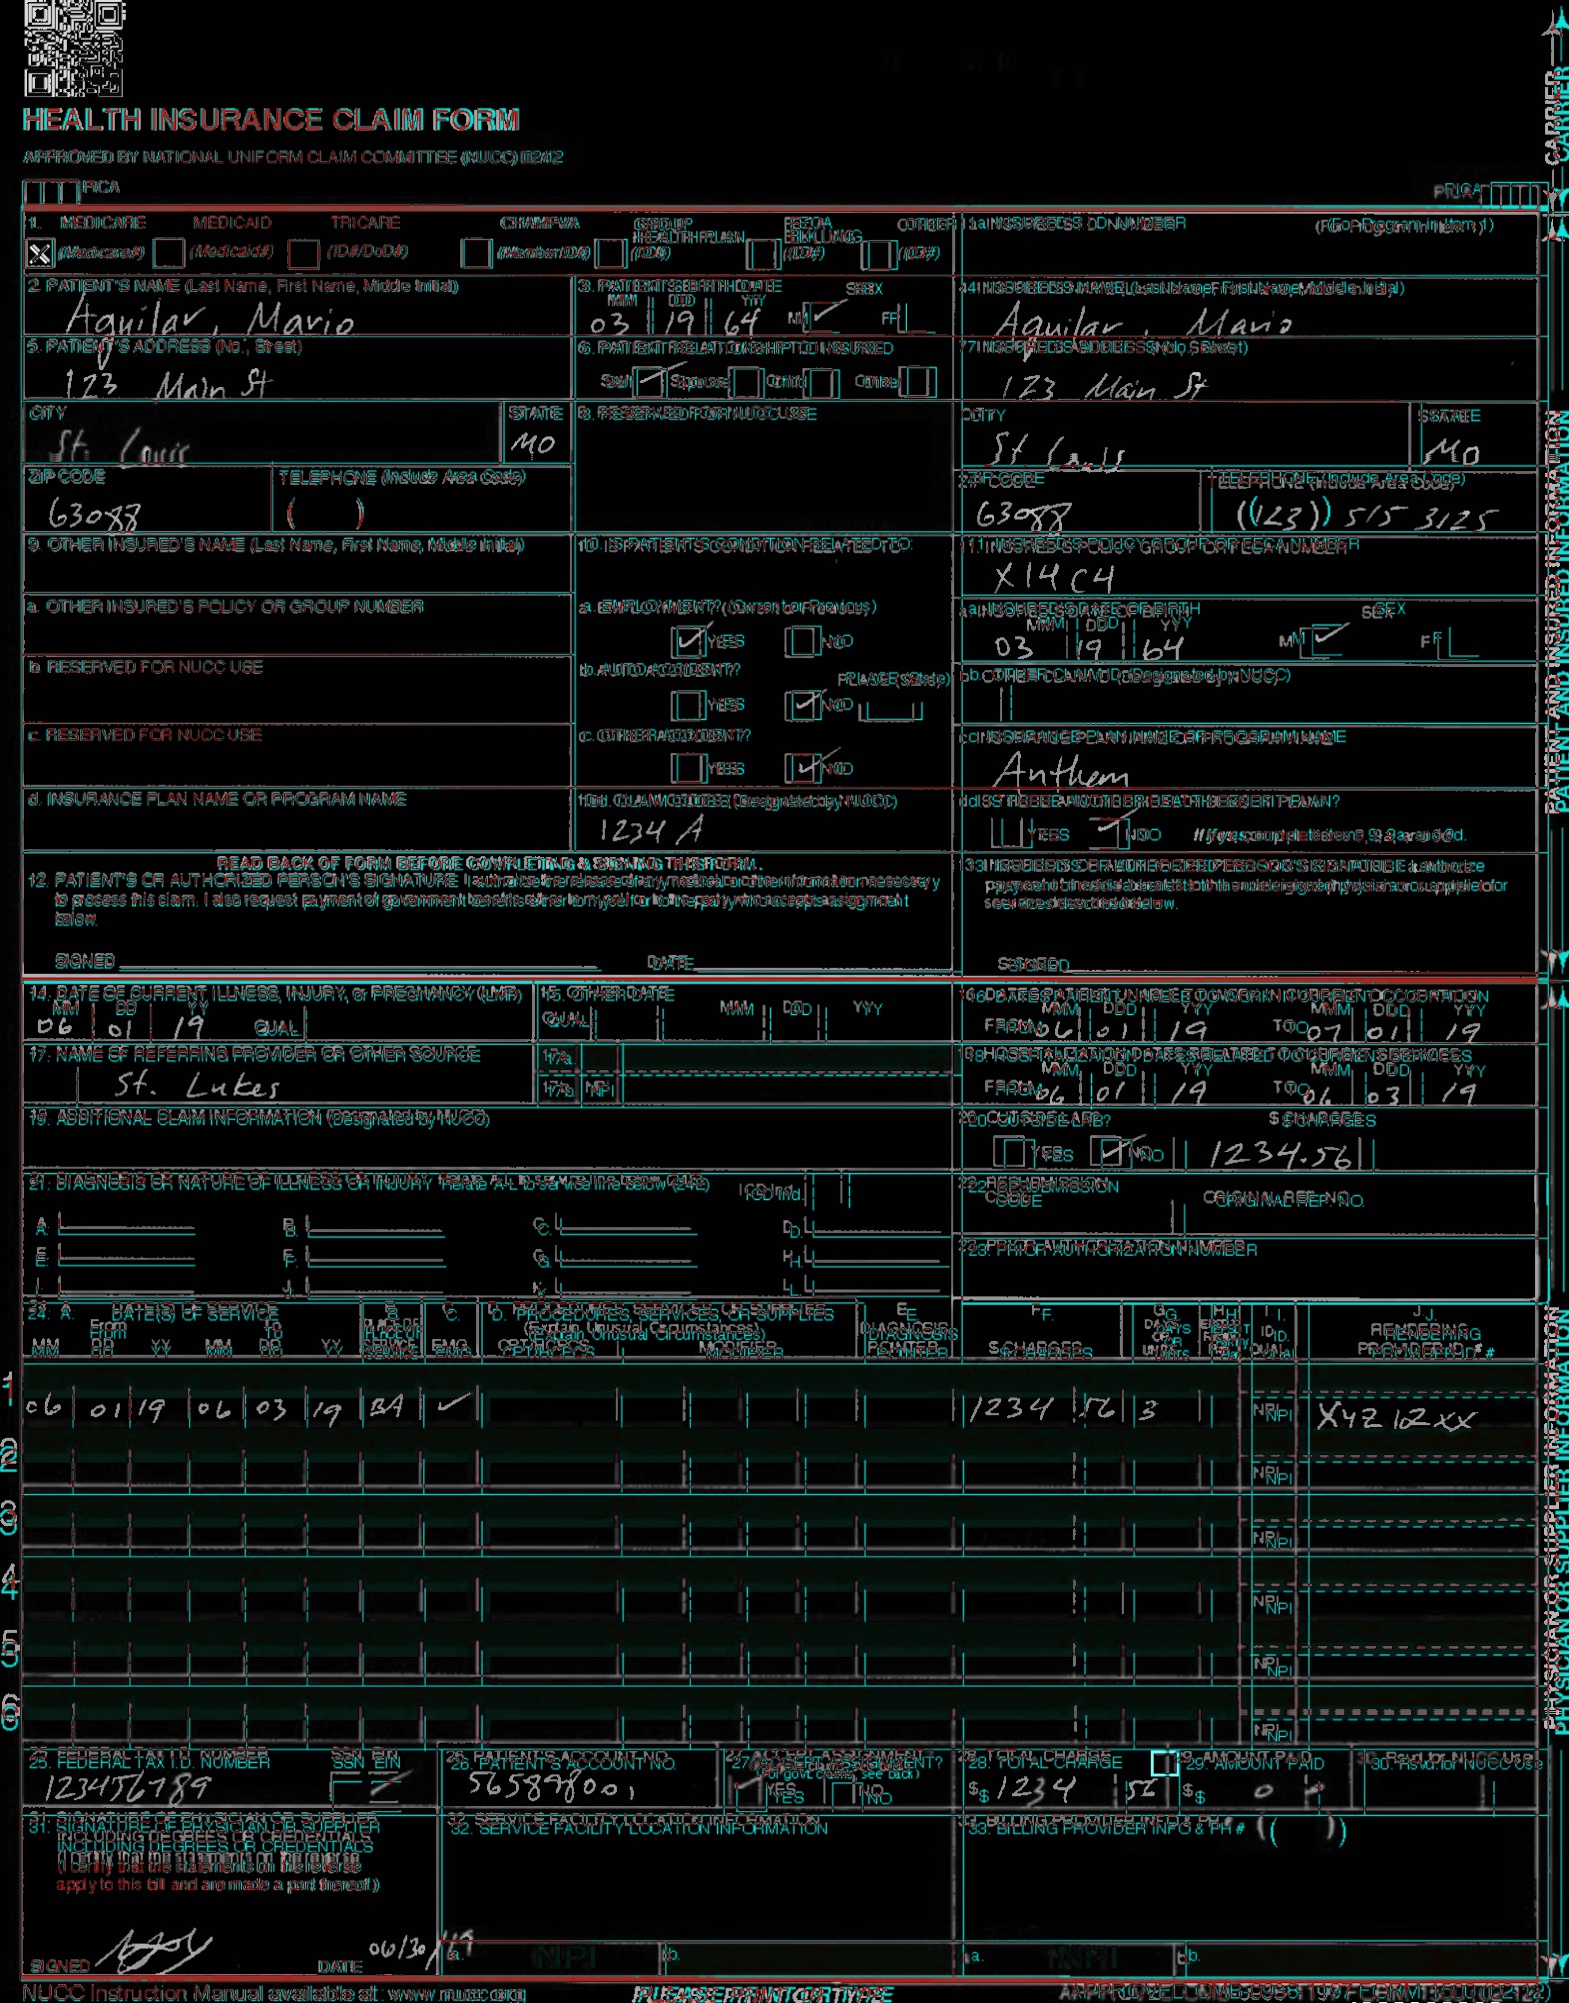 HEALTH INSURANCE CLAIM FORM
APPROVED BY NATIONAL UNIFORM CLAIM COMMITTEE (NUCC) 02/12
PICA
PICA
1. MEDICARE MEDICAID TRICARE CHAMPVA GROUP HEALTH PLAN FECA BLK LUNG OTHER
(Medicare#) (Medicaid#) (ID#/DoD#) (Member ID#) (ID#) (ID#) (ID#)
1a. INSURED'S I.D. NUMBER (For Program in Item 1)
2. PATIENT'S NAME (Last Name, First Name, Middle Initial)
Aguilar, Mario
3. PATIENT'S BIRTH DATE SEX
MM DD YY
03 19 64 M F
4. INSURED'S NAME (Last Name, First Name, Middle Initial)
Aguilar, Mario
5. PATIENT'S ADDRESS (No., Street)
123 Main St
6. PATIENT RELATIONSHIP TO INSURED
Self Spouse Child Other
7. INSURED'S ADDRESS (No., Street)
123 Main St
CITY STATE
St. Louis MO
8. RESERVED FOR NUCC USE
CITY STATE
St Louis MO
ZIP CODE TELEPHONE (Include Area Code)
63088 ( )
ZIP CODE TELEPHONE (Include Area Code)
63088 (123) 515 3125
9. OTHER INSURED'S NAME (Last Name, First Name, Middle Initial)
10. IS PATIENT'S CONDITION RELATED TO:
11. INSURED'S POLICY GROUP OR FECA NUMBER
X14C4
a. OTHER INSURED'S POLICY OR GROUP NUMBER
a. EMPLOYMENT? (Current or Previous)
YES NO
a. INSURED'S DATE OF BIRTH SEX
MM DD YY
03 19 64 M F
b. RESERVED FOR NUCC USE
b. AUTO ACCIDENT? PLACE (State)
YES NO
b. OTHER CLAIM ID (Designated by NUCC)
c. RESERVED FOR NUCC USE
c. OTHER ACCIDENT?
YES NO
c. INSURANCE PLAN NAME OR PROGRAM NAME
Anthem
d. INSURANCE PLAN NAME OR PROGRAM NAME
10d. CLAIM CODES (Designated by NUCC)
1234 A
d. IS THERE ANOTHER HEALTH BENEFIT PLAN?
YES NO If yes, complete items 9, 9a, and 9d.
READ BACK OF FORM BEFORE COMPLETING & SIGNING THIS FORM.
12. PATIENT'S OR AUTHORIZED PERSON'S SIGNATURE I authorize the release of any medical or other information necessary
to process this claim. I also request payment of government benefits either to myself or to the party who accepts assignment
below.
SIGNED DATE
13. INSURED'S OR AUTHORIZED PERSON'S SIGNATURE I authorize
payment of medical benefits to the undersigned physician or supplier for
services described below.
SIGNED
14. DATE OF CURRENT ILLNESS, INJURY, or PREGNANCY (LMP)
MM DD YY
06 01 19 QUAL.
15. OTHER DATE
QUAL. MM DD YY
16. DATES PATIENT UNABLE TO WORK IN CURRENT OCCUPATION
MM DD YY MM DD YY
FROM 06 01 19 TO 07 01 19
17. NAME OF REFERRING PROVIDER OR OTHER SOURCE
St. Lukes
17a.
17b. NPI
18. HOSPITALIZATION DATES RELATED TO CURRENT SERVICES
MM DD YY MM DD YY
FROM 06 01 19 TO 06 03 19
19. ADDITIONAL CLAIM INFORMATION (Designated by NUCC)
20. OUTSIDE LAB? $ CHARGES
YES NO 1234.56
21. DIAGNOSIS OR NATURE OF ILLNESS OR INJURY Relate A-L to service line below (24E) ICD Ind.
A. B. C. D.
E. F. G. H.
I. J. K. L.
22. RESUBMISSION CODE ORIGINAL REF. NO.
23. PRIOR AUTHORIZATION NUMBER
24. A. DATE(S) OF SERVICE B. C. D. PROCEDURES, SERVICES, OR SUPPLIES E. F. G. H. I. J.
From To PLACE OF SERVICE EMG (Explain Unusual Circumstances) DIAGNOSIS POINTER $ CHARGES DAYS OR UNITS ID. QUAL. RENDERING PROVIDER ID. #
MM DD YY MM DD YY CPT/HCPCS MODIFIER
1 06 01 19 06 03 19 BA 1234 56 3 NPI XYZ12XX
2 NPI
3 NPI
4 NPI
5 NPI
6 NPI
25. FEDERAL TAX I.D. NUMBER SSN EIN
123456789
26. PATIENT'S ACCOUNT NO.
27. ACCEPT ASSIGNMENT?
(For govt. claims, see back)
YES NO
28. TOTAL CHARGE
$ 1234 56
29. AMOUNT PAID
$ 0
30. Rsvd for NUCC Use
31. SIGNATURE OF PHYSICIAN OR SUPPLIER
INCLUDING DEGREES OR CREDENTIALS
(I certify that the statements on the reverse
apply to this bill and are made a part thereof.)
SIGNED DATE 06/30/19
32. SERVICE FACILITY LOCATION INFORMATION
a. NPI b.
33. BILLING PROVIDER INFO & PH # ( )
a. NPI b.
NUCC Instruction Manual available at: www.nucc.org
PLEASE PRINT OR TYPE
CARRIER
PATIENT AND INSURED INFORMATION
PHYSICIAN OR SUPPLIER INFORMATION